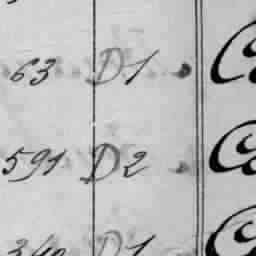 63 D1
591 D2
340 D1